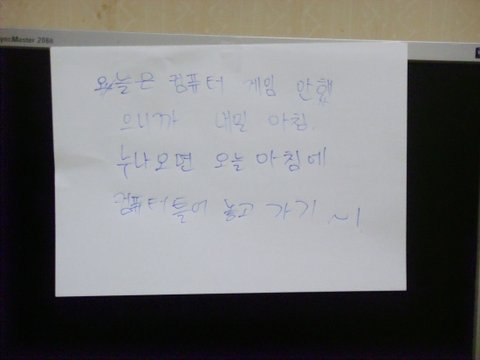 SyncMaster 206s
오늘은 컴퓨터 게임 안했
으니까 내일 아침.
누나오면 오늘 아침에
컴퓨터틀어 놓고 가기 ~!